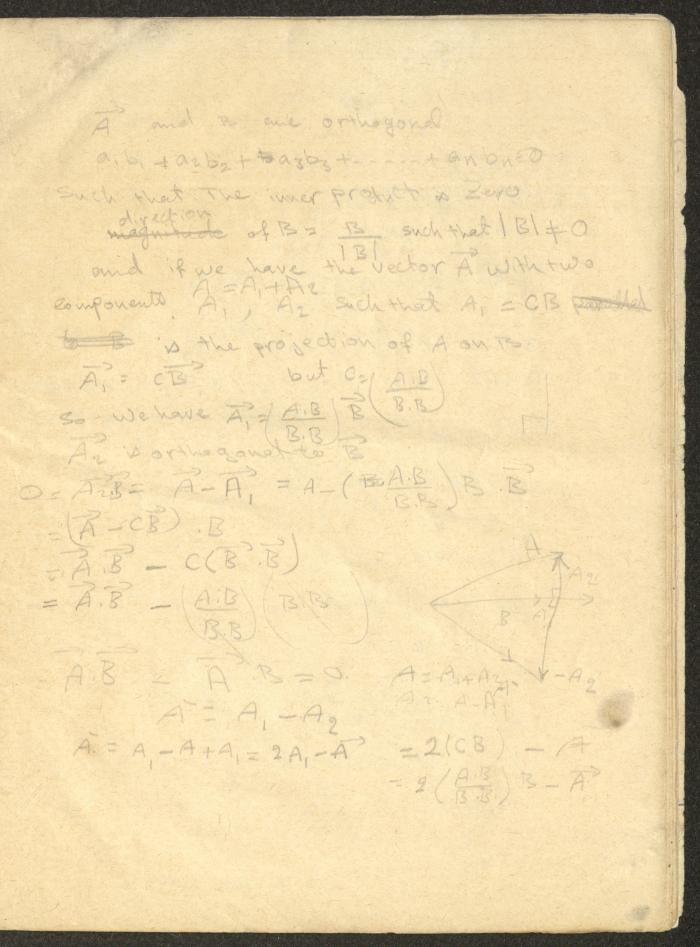 A⃗ and B are orthogonal
a₁b₁ + a₂b₂ + a₃b₃ + ...... + aₙbₙ = 0
such that The inner product is Zero
direction
magnitude of B = B/|B| such that |B| ≠ 0
and if we have the vector A⃗ with two
A = A₁ + A₂
components. A₁, A₂ such that A₁ = CB parallel
to B is the projection of A on B.
A⃗₁ = cB⃗ but C = (A.B/B.B)
so we have A⃗₁ = (A.B/B.B) B⃗
A⃗₂ is orthogonal to B⃗
0 = A⃗₂.B⃗ = A⃗ - A⃗₁ = A - (A.B/B.B) B . B⃗
= (A⃗ - CB⃗) . B
= A⃗.B⃗ - C(B⃗.B⃗)
= A⃗.B⃗ - (A.B/B.B) (B.B)
A
A₂
B
A₁
-A₂
A⃗.B⃗ - A⃗.B = 0.
A = A₁ + A₂
A₂ = A - A₁
A' = A₁ - A₂
A' = A₁ - A + A₁ = 2A₁ - A⃗ = 2(CB) - A⃗
= 2(A.B/B.B) B - A⃗